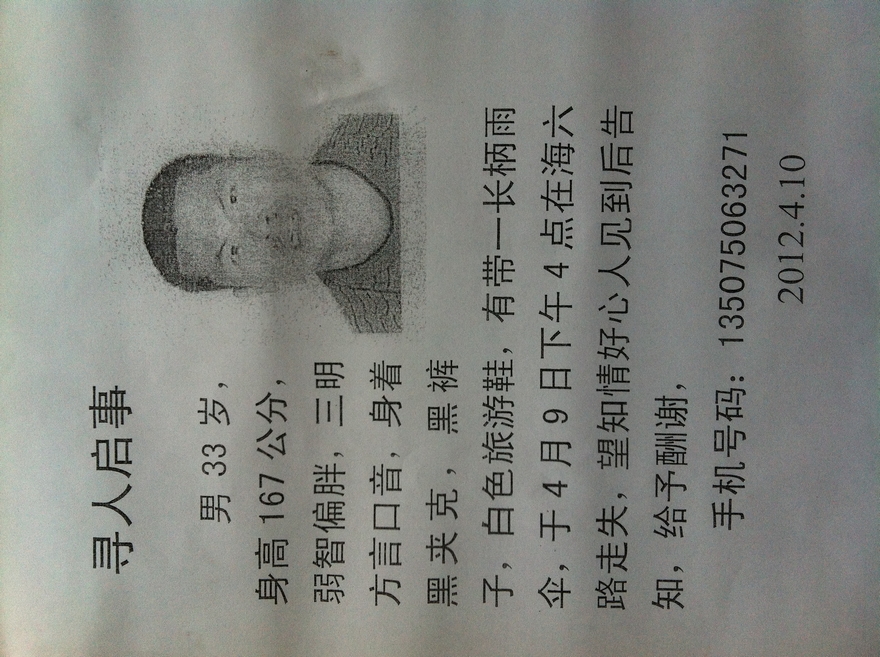 寻人启事
男 33 岁，
身高 167 公分，
弱智偏胖，三明
方言口音，身着
黑夹克，黑裤
子，白色旅游鞋，有带一长柄雨
伞，于 4 月 9 日下午 4 点在海六
路走失，望知情好心人见到后告
知，给予酬谢，
手机号码：135075063271
2012.4.10